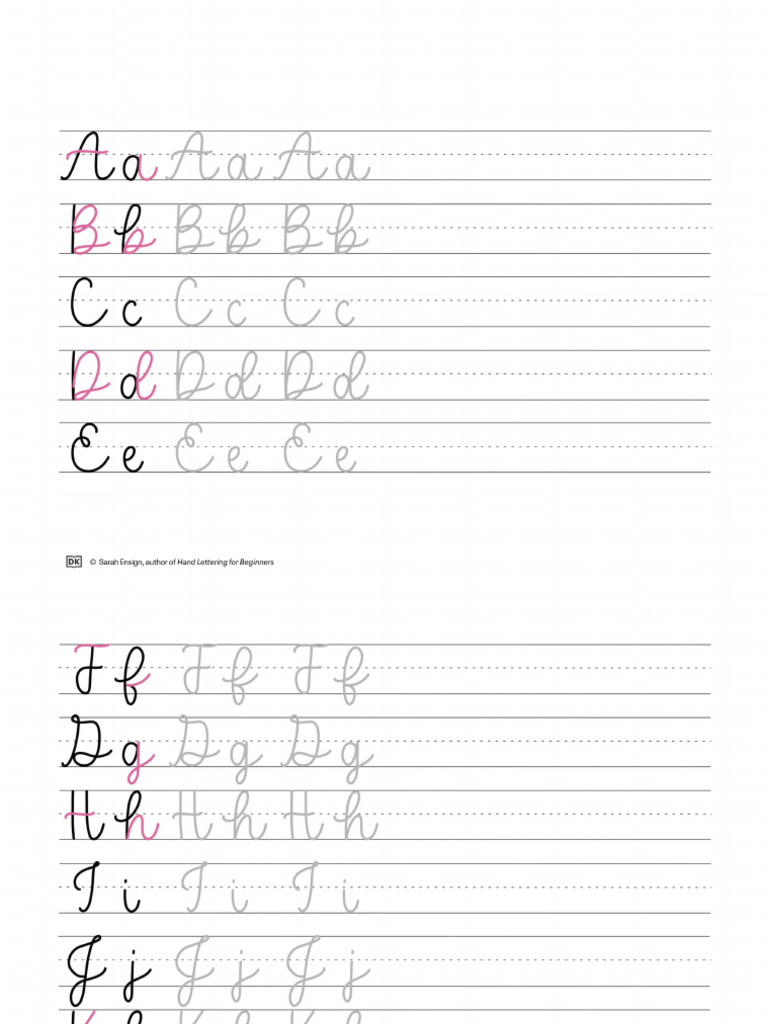 Aa Aa Aa
Bb Bb Bb
Cc Cc Cc
Dd Dd Dd
Ee Ee Ee
DK © Sarah Ensign, author of Hand Lettering for Beginners
Ff Ff Ff
Gg Gg Gg
Hh Hh Hh
Ii Ii Ii
Jj Jj Jj